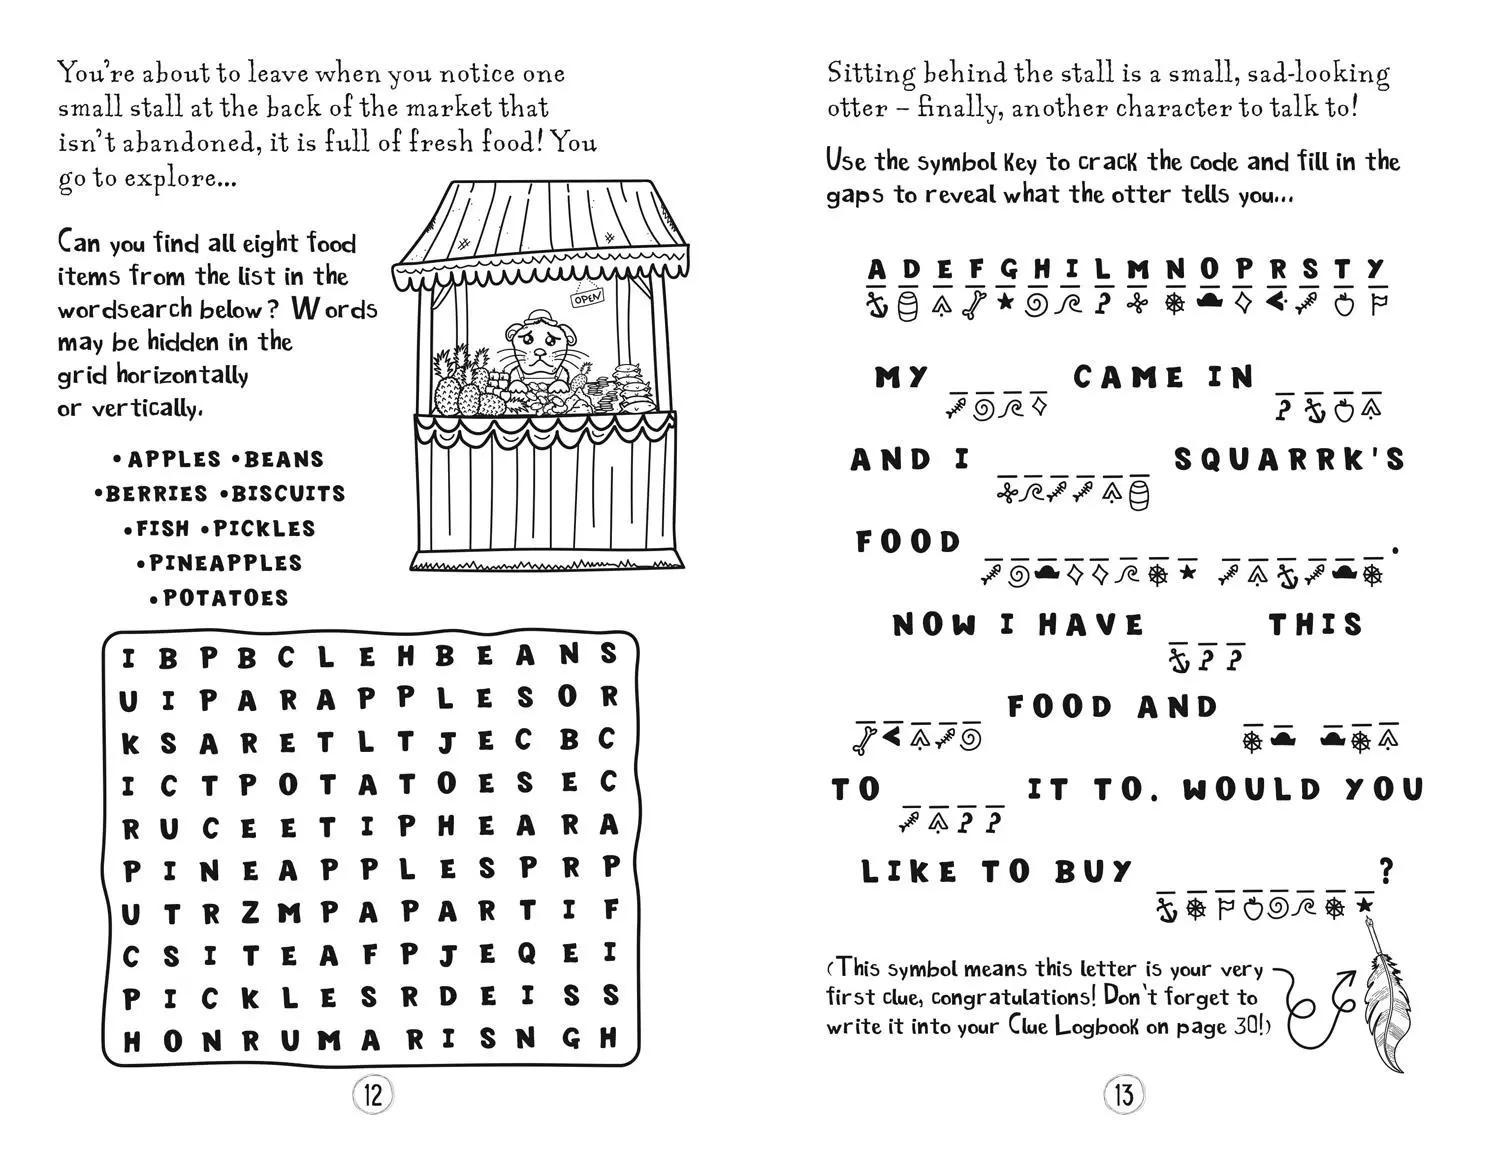 You're about to leave when you notice one
small stall at the back of the market that
isn't abandoned, it is full of fresh food! You
go to explore...
Can you find all eight food
items from the list in the
wordsearch below? Words
may be hidden in the
grid horizontally
or vertically.
OPEN
• APPLES • BEANS
• BERRIES • BISCUITS
• FISH • PICKLES
• PINEAPPLES
• POTATOES
I B P B C L E H B E A N S
U I P A R A P P L E S O R
K S A R E T L T J E C B C
I C T P O T A T O E S E C
R U C E E T I P H E A R A
P I N E A P P L E S P R P
U T R Z M P A P A R T I F
C S I T E A F P J E Q E I
P I C K L E S R D E I S S
H O N R U M A R I S N G H
12
Sitting behind the stall is a small, sad-looking
otter – finally, another character to talk to!
Use the symbol key to crack the code and fill in the
gaps to reveal what the otter tells you...
A D E F G H I L M N O P R S T Y
MY _ _ _ _ CAME IN _ _ _ _
AND I _ _ _ _ _ _ SQUARRK'S
FOOD _ _ _ _ _ _ _ _ _ _ _ _ _ _ .
NOW I HAVE _ _ _ THIS
_ _ _ _ _ FOOD AND _ _ _ _ _
TO _ _ _ _ IT TO. WOULD YOU
LIKE TO BUY _ _ _ _ _ _ _ _ ?
(This symbol means this letter is your very
first clue, congratulations! Don't forget to
write it into your Clue Logbook on page 30!)
13